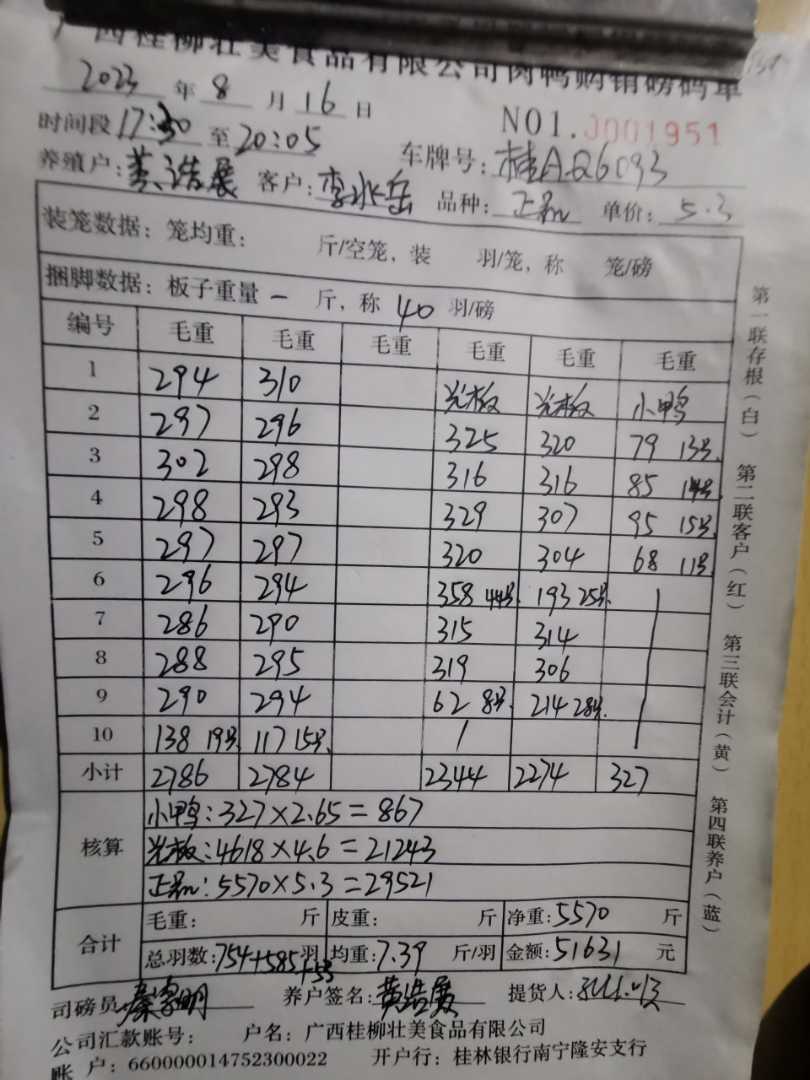 广西桂柳壮美食品有限公司肉鸭购销磅码单
2023 年 8 月 16 日
NO1. 0001951
时间段 17:30 至 20:05
车牌号: 桂A·Q6093
养殖户: 黄浩展 客户: 李水岳 品种: 正品 单价: 5.3
装笼数据: 笼均重: 斤/空笼, 装 羽/笼, 称 笼/磅
捆脚数据: 板子重量 一 斤, 称 40 羽/磅
编号 毛重 毛重 毛重 毛重 毛重 毛重
1 294 310 光板 光板 小鸭
2 297 296 325 320 79 13只
3 302 298 316 316 85 14只
4 298 293 329 307 95 15只
5 297 297 320 304 68 11只
6 296 294 358 44只 193 25只
7 286 290 315 314
8 288 295 319 306
9 290 294 62 8只 214 28只
10 138 19只 117 15只
小计 2786 2784 2344 2274 327
核算
小鸭: 327×2.65=867
光板: 4618×4.6=21243
正品: 5570×5.3=29521
合计
毛重: 斤 皮重: 斤 净重: 5570 斤
总羽数: 754+585+53 羽 均重: 7.39 斤/羽 金额: 51631 元
司磅员: 养户签名: 黄浩展 提货人:
公司汇款账号: 户名: 广西桂柳壮美食品有限公司
账 户: 660000014752300022 开户行: 桂林银行南宁隆安支行
第一联存根(白) 第二联客户(红) 第三联会计(黄) 第四联养户(蓝)